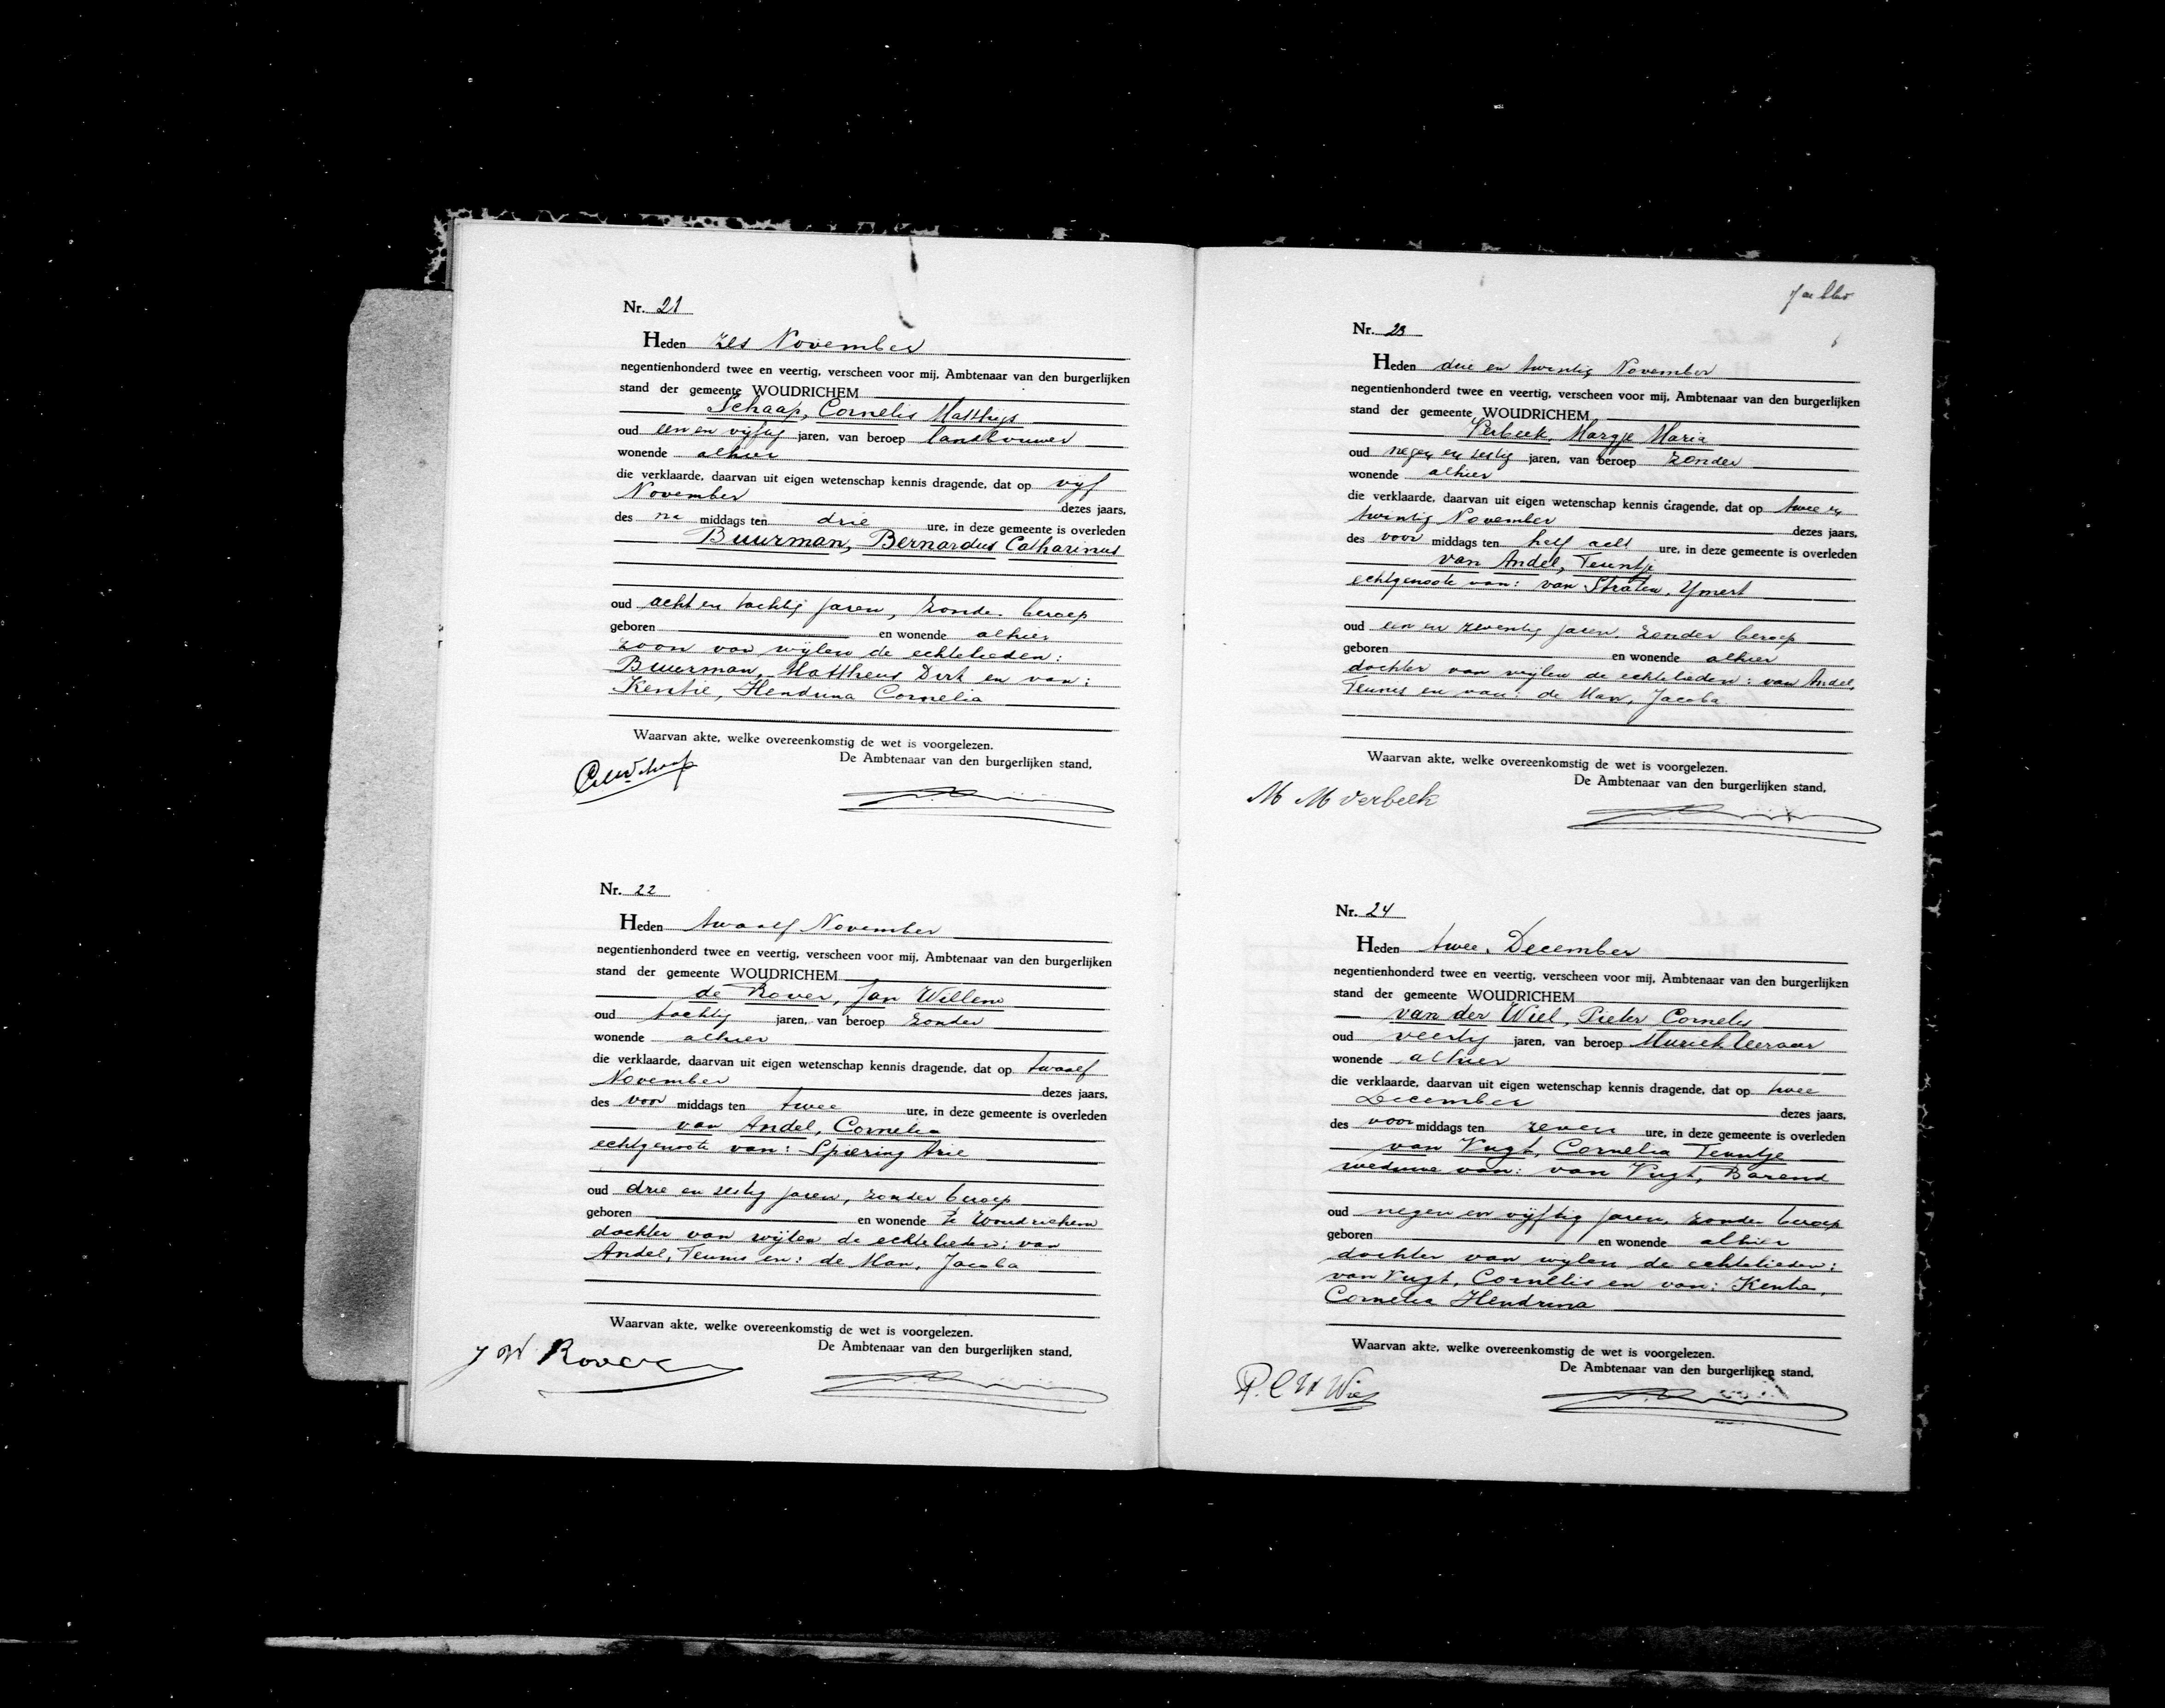 Nr. 21
Heden zes November
negentienhonderd twee en veertig, verscheen voor mij, Ambtenaar van den burgerlijken
stand der gemeente WOUDRICHEM
Schaap, Cornelis Matthijs
oud een en vijftig jaren, van beroep landbouwer
wonende alhier
die verklaarde, daarvan uit eigen wetenschap kennis dragende, dat op vijf
November dezes jaars,
des na middags ten drie ure, in deze gemeente is overleden
Buurman, Bernardus Catharinus
oud acht en tachtig jaren, zonder beroep
geboren en wonende alhier
zoon van wijlen de echtelieden:
Buurman, Mattheus Dirk en van:
Kentie, Hendrina Cornelia
Waarvan akte, welke overeenkomstig de wet is voorgelezen.
De Ambtenaar van den burgerlijken stand,
Nr. 22
Heden twaalf November
negentienhonderd twee en veertig, verscheen voor mij, Ambtenaar van den burgerlijken
stand der gemeente WOUDRICHEM
de Rover, Jan Willem
oud tachtig jaren, van beroep zonder
wonende alhier
die verklaarde, daarvan uit eigen wetenschap kennis dragende, dat op twaalf
November dezes jaars,
des voor middags ten twee ure, in deze gemeente is overleden
van Andel, Cornelia
echtgenoote van: Spiering Arie
oud drie en zestig jaren, zonder beroep
geboren en wonende te Woudrichem
dochter van wijlen de echtelieden: van
Andel, Teunis en: de Man, Jacoba
Waarvan akte, welke overeenkomstig de wet is voorgelezen.
De Ambtenaar van den burgerlijken stand,
J W Rover
Nr. 23
Heden drie en twintig November
negentienhonderd twee en veertig, verscheen voor mij, Ambtenaar van den burgerlijken
stand der gemeente WOUDRICHEM
Verbeek, Margje Maria
oud negen en zestig jaren, van beroep zonder
wonende alhier
die verklaarde, daarvan uit eigen wetenschap kennis dragende, dat op twee en
twintig November dezes jaars,
des voor middags ten half acht ure, in deze gemeente is overleden
van Andel, Teuntje
echtgenoote van: van Straten, Ymert
oud een en zeventig jaren, zonder beroep
geboren en wonende alhier
dochter van wijlen de echtelieden: van Andel,
Teunis en van: de Man, Jacoba
Waarvan akte, welke overeenkomstig de wet is voorgelezen.
De Ambtenaar van den burgerlijken stand,
M M Verbeek
Nr. 24
Heden twee December
negentienhonderd twee en veertig, verscheen voor mij, Ambtenaar van den burgerlijken
stand der gemeente WOUDRICHEM
van der Wiel, Pieter Cornelis
oud veertig jaren, van beroep Muziekleeraar
wonende alhier
die verklaarde, daarvan uit eigen wetenschap kennis dragende, dat op twee
December dezes jaars,
des voor middags ten zeven ure, in deze gemeente is overleden
van Vugt, Cornelia Teuntje
weduwe van: van Vugt, Barend
oud negen en vijftig jaren, zonder beroep
geboren en wonende alhier
dochter van wijlen de echtelieden:
van Vugt, Cornelis en van: Kentie,
Cornelia Hendrina
Waarvan akte, welke overeenkomstig de wet is voorgelezen.
De Ambtenaar van den burgerlijken stand,